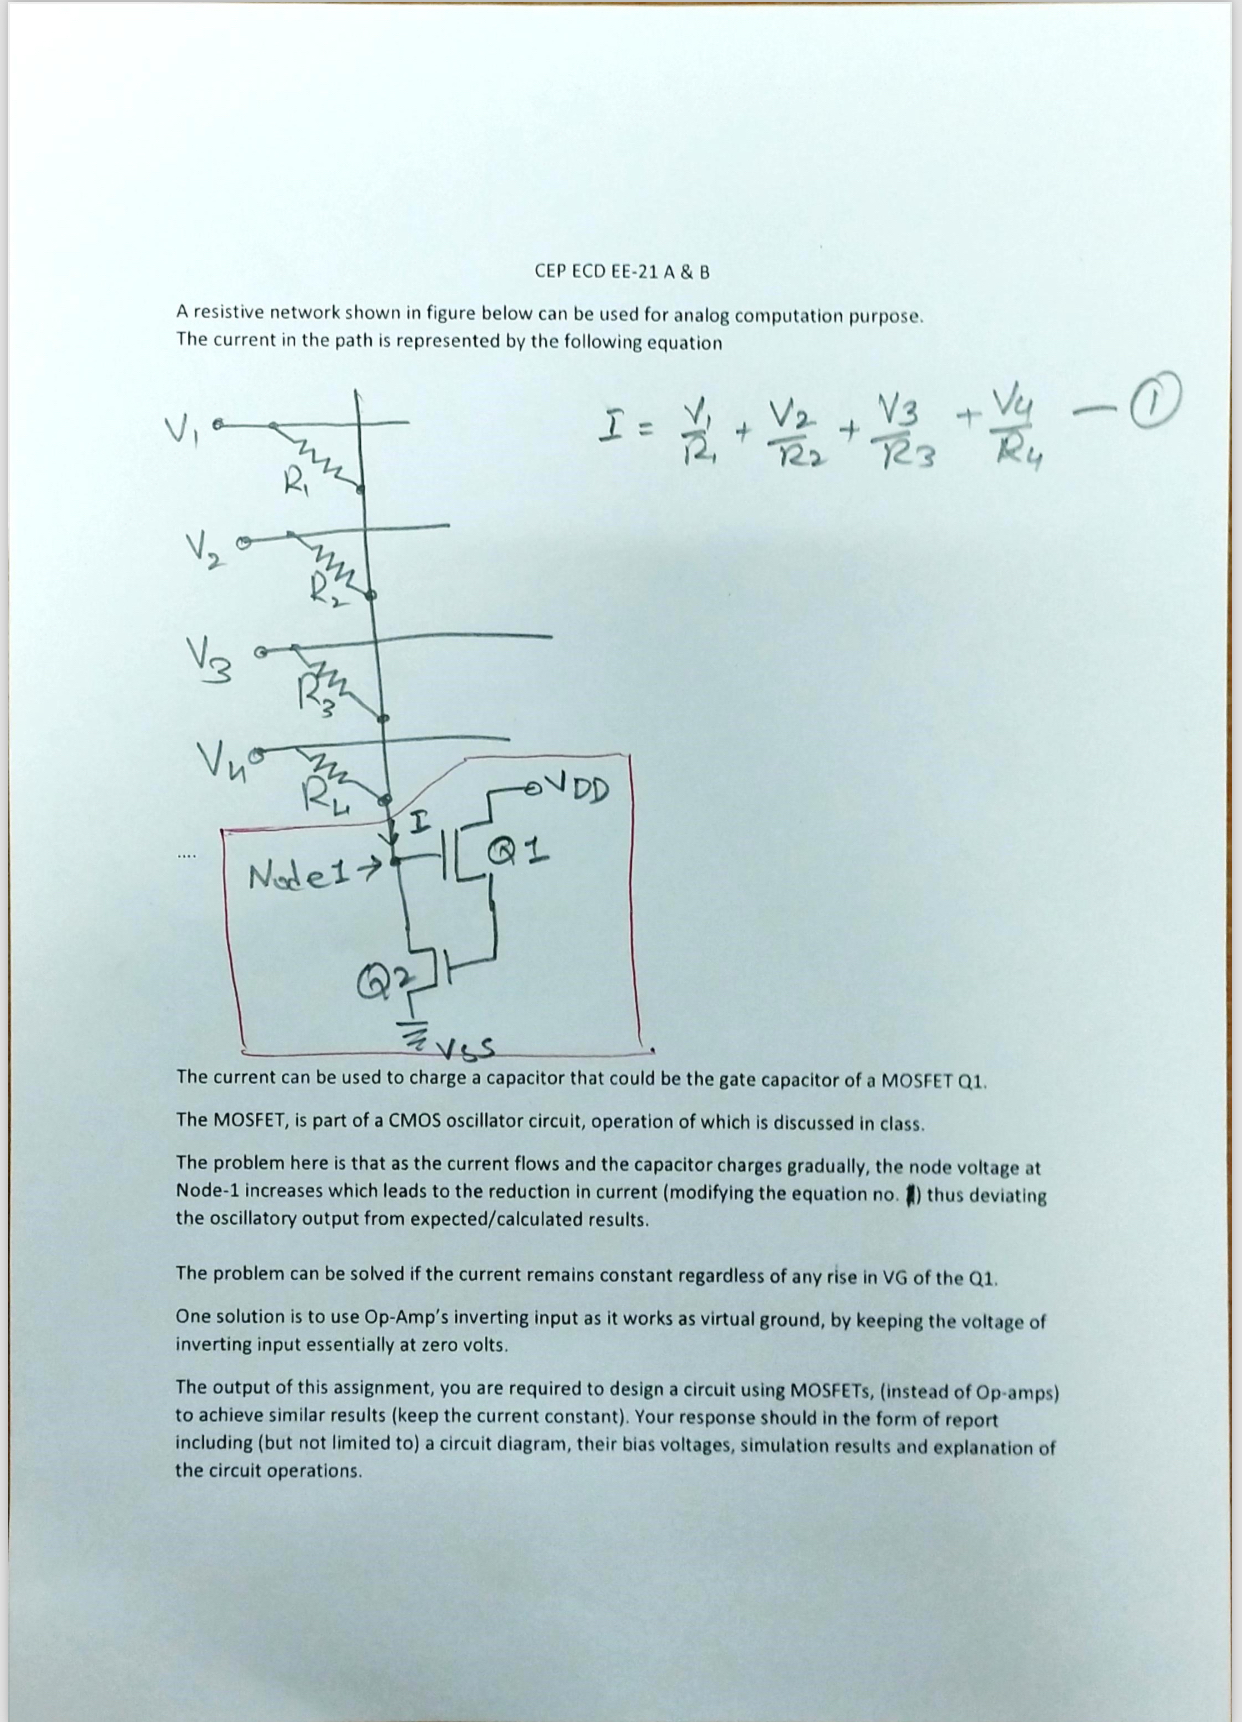 CEP ECD EE-21 A & B
A resistive network shown in figure below can be used for analog computation purpose.
The current in the path is represented by the following equation
I = V1/R1 + V2/R2 + V3/R3 + V4/R4 — ①
V1
R1
V2
R2
V3
R3
V4
R4
VDD
I
Q1
....
Node1→
Q2
VSS
The current can be used to charge a capacitor that could be the gate capacitor of a MOSFET Q1.
The MOSFET, is part of a CMOS oscillator circuit, operation of which is discussed in class.
The problem here is that as the current flows and the capacitor charges gradually, the node voltage at
Node-1 increases which leads to the reduction in current (modifying the equation no. 1) thus deviating
the oscillatory output from expected/calculated results.
The problem can be solved if the current remains constant regardless of any rise in VG of the Q1.
One solution is to use Op-Amp's inverting input as it works as virtual ground, by keeping the voltage of
inverting input essentially at zero volts.
The output of this assignment, you are required to design a circuit using MOSFETs, (instead of Op-amps)
to achieve similar results (keep the current constant). Your response should in the form of report
including (but not limited to) a circuit diagram, their bias voltages, simulation results and explanation of
the circuit operations.